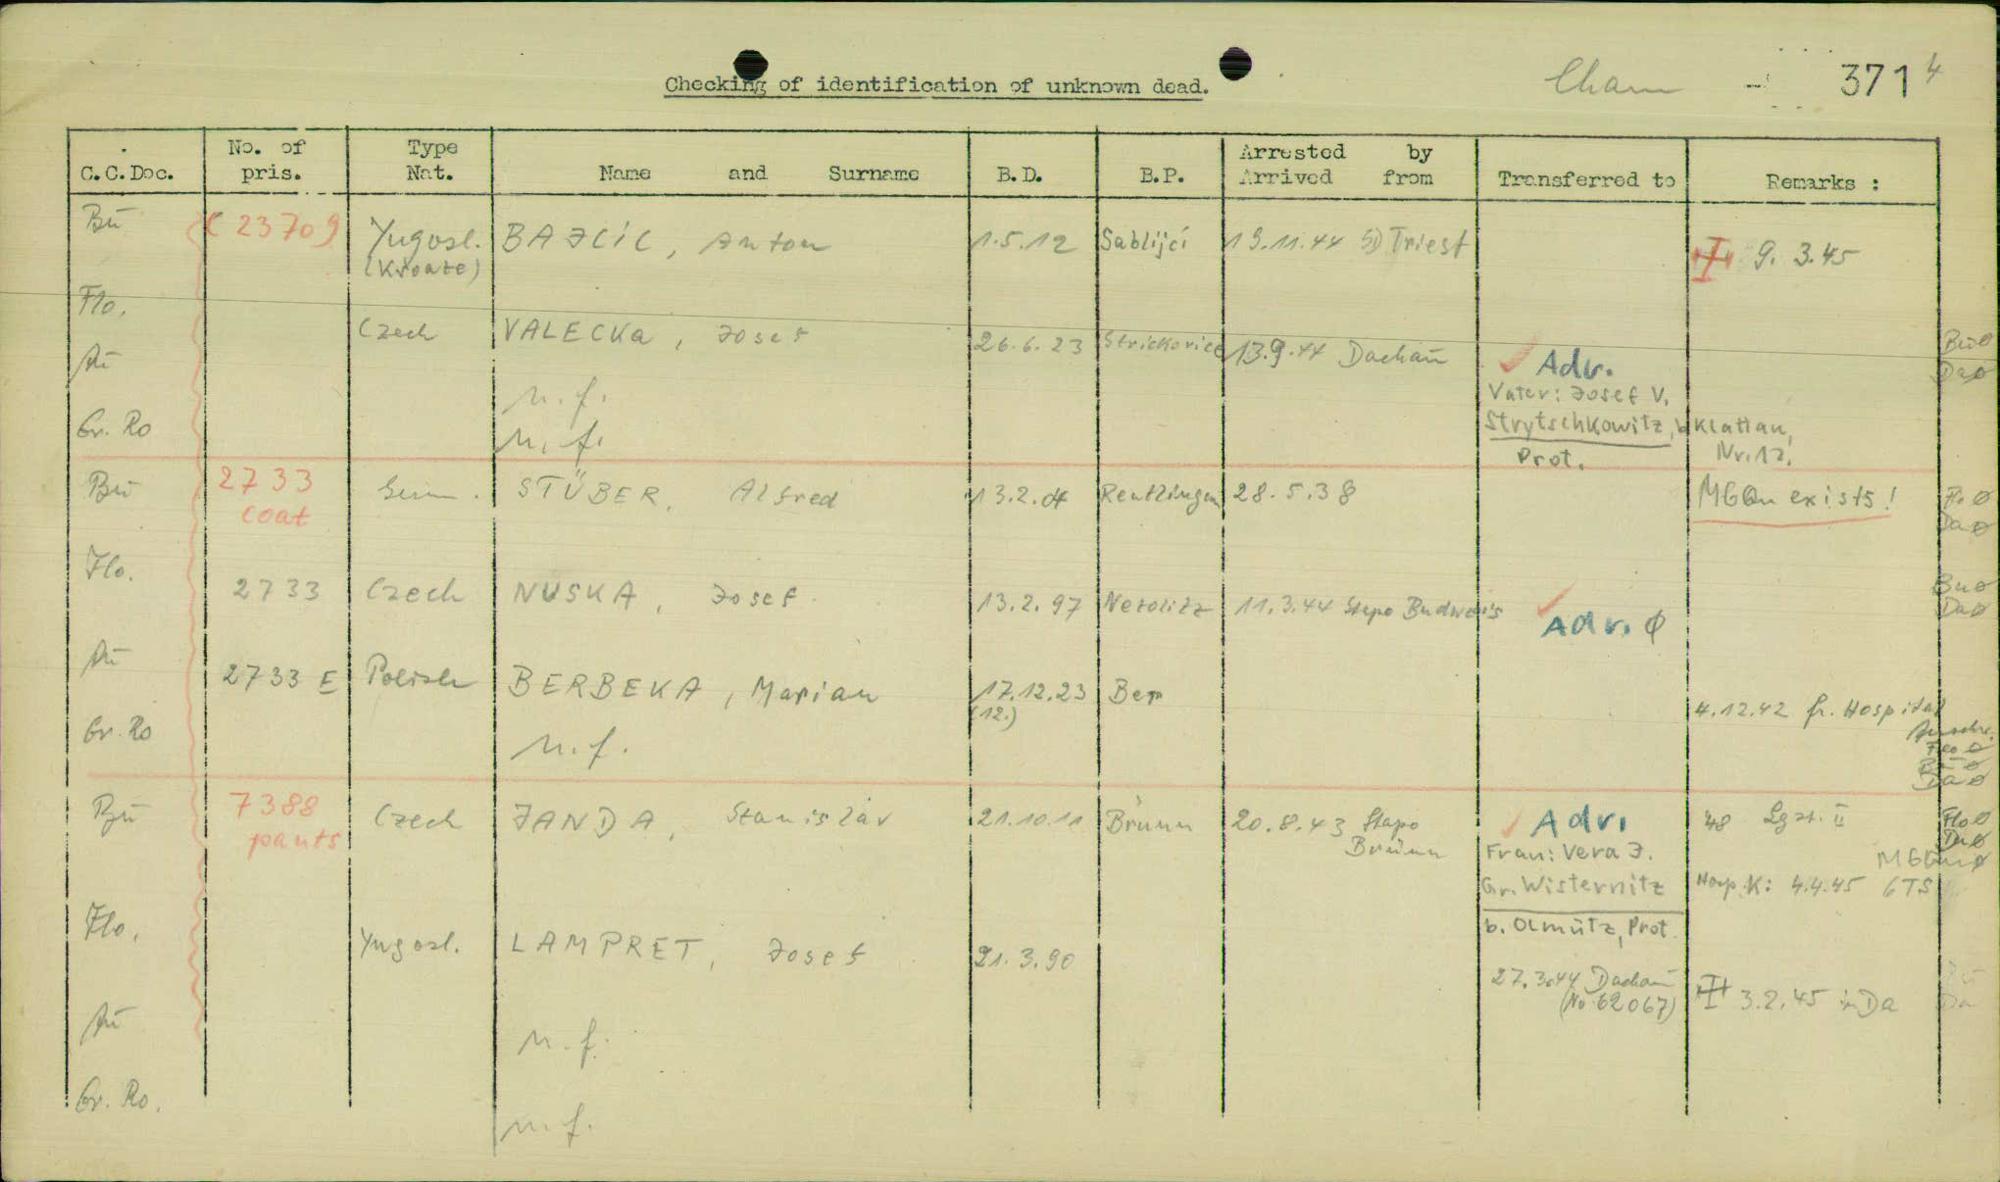 Checking of identification of unknown dead.
Cham - 371 4
C.C.Doc. No. of pris. Type Nat. Name and Surname B.D. B.P. Arrested by Arrived from Transferred to Remarks :
Bu 23709 Yugosl. BAJCIC, Anton 1.5.12 Sablijci 19.11.44 SD Triest 9. 3.45
(Kroate)
Flo.
Czech VALECKA, Josef 26.6.23 Strickovice 13.9.44 Dachau Adr. Buø
Au Daø
Vater: Josef V.
n.f.
Strytschkowitz, b Klattau,
Gr. Ro n.f.
Prot. Nr.12.
Bu 2733 Germ. STÜBER, Alfred 13.2.04 Reutlingen 28.5.38 MGQu exists! Flo ø
coat Da ø
Flo.
2733 Czech NUSKA, Josef 13.2.97 Netolitz 11.3.44 Stapo Budweis Adr. ø Buø
Daø
Au
2733 E Polish BERBEKA, Marian 17.12.23 Ber 4.12.42 fr. Hospital
(12.)
Gr. Ro n.f. Flo ø
Bu ø
Da ø
Bu 7388 Czech JANDA, Stanislav 21.10.11 Brünn 20.8.43 Stapo Adr. 48 Lgst. II Flo ø
pants Brünn Da ø
Frau: Vera J.
Gr. Wisternitz Hosp.K: 4.4.45 6TS
b. Olmütz, Prot.
Flo.
Yugosl. LAMPRET, Josef 21.3.90
27.3.44 Dachau 3.2.45 in Da
(No 62067)
Au n.f.
Gr. Ro. n.f.